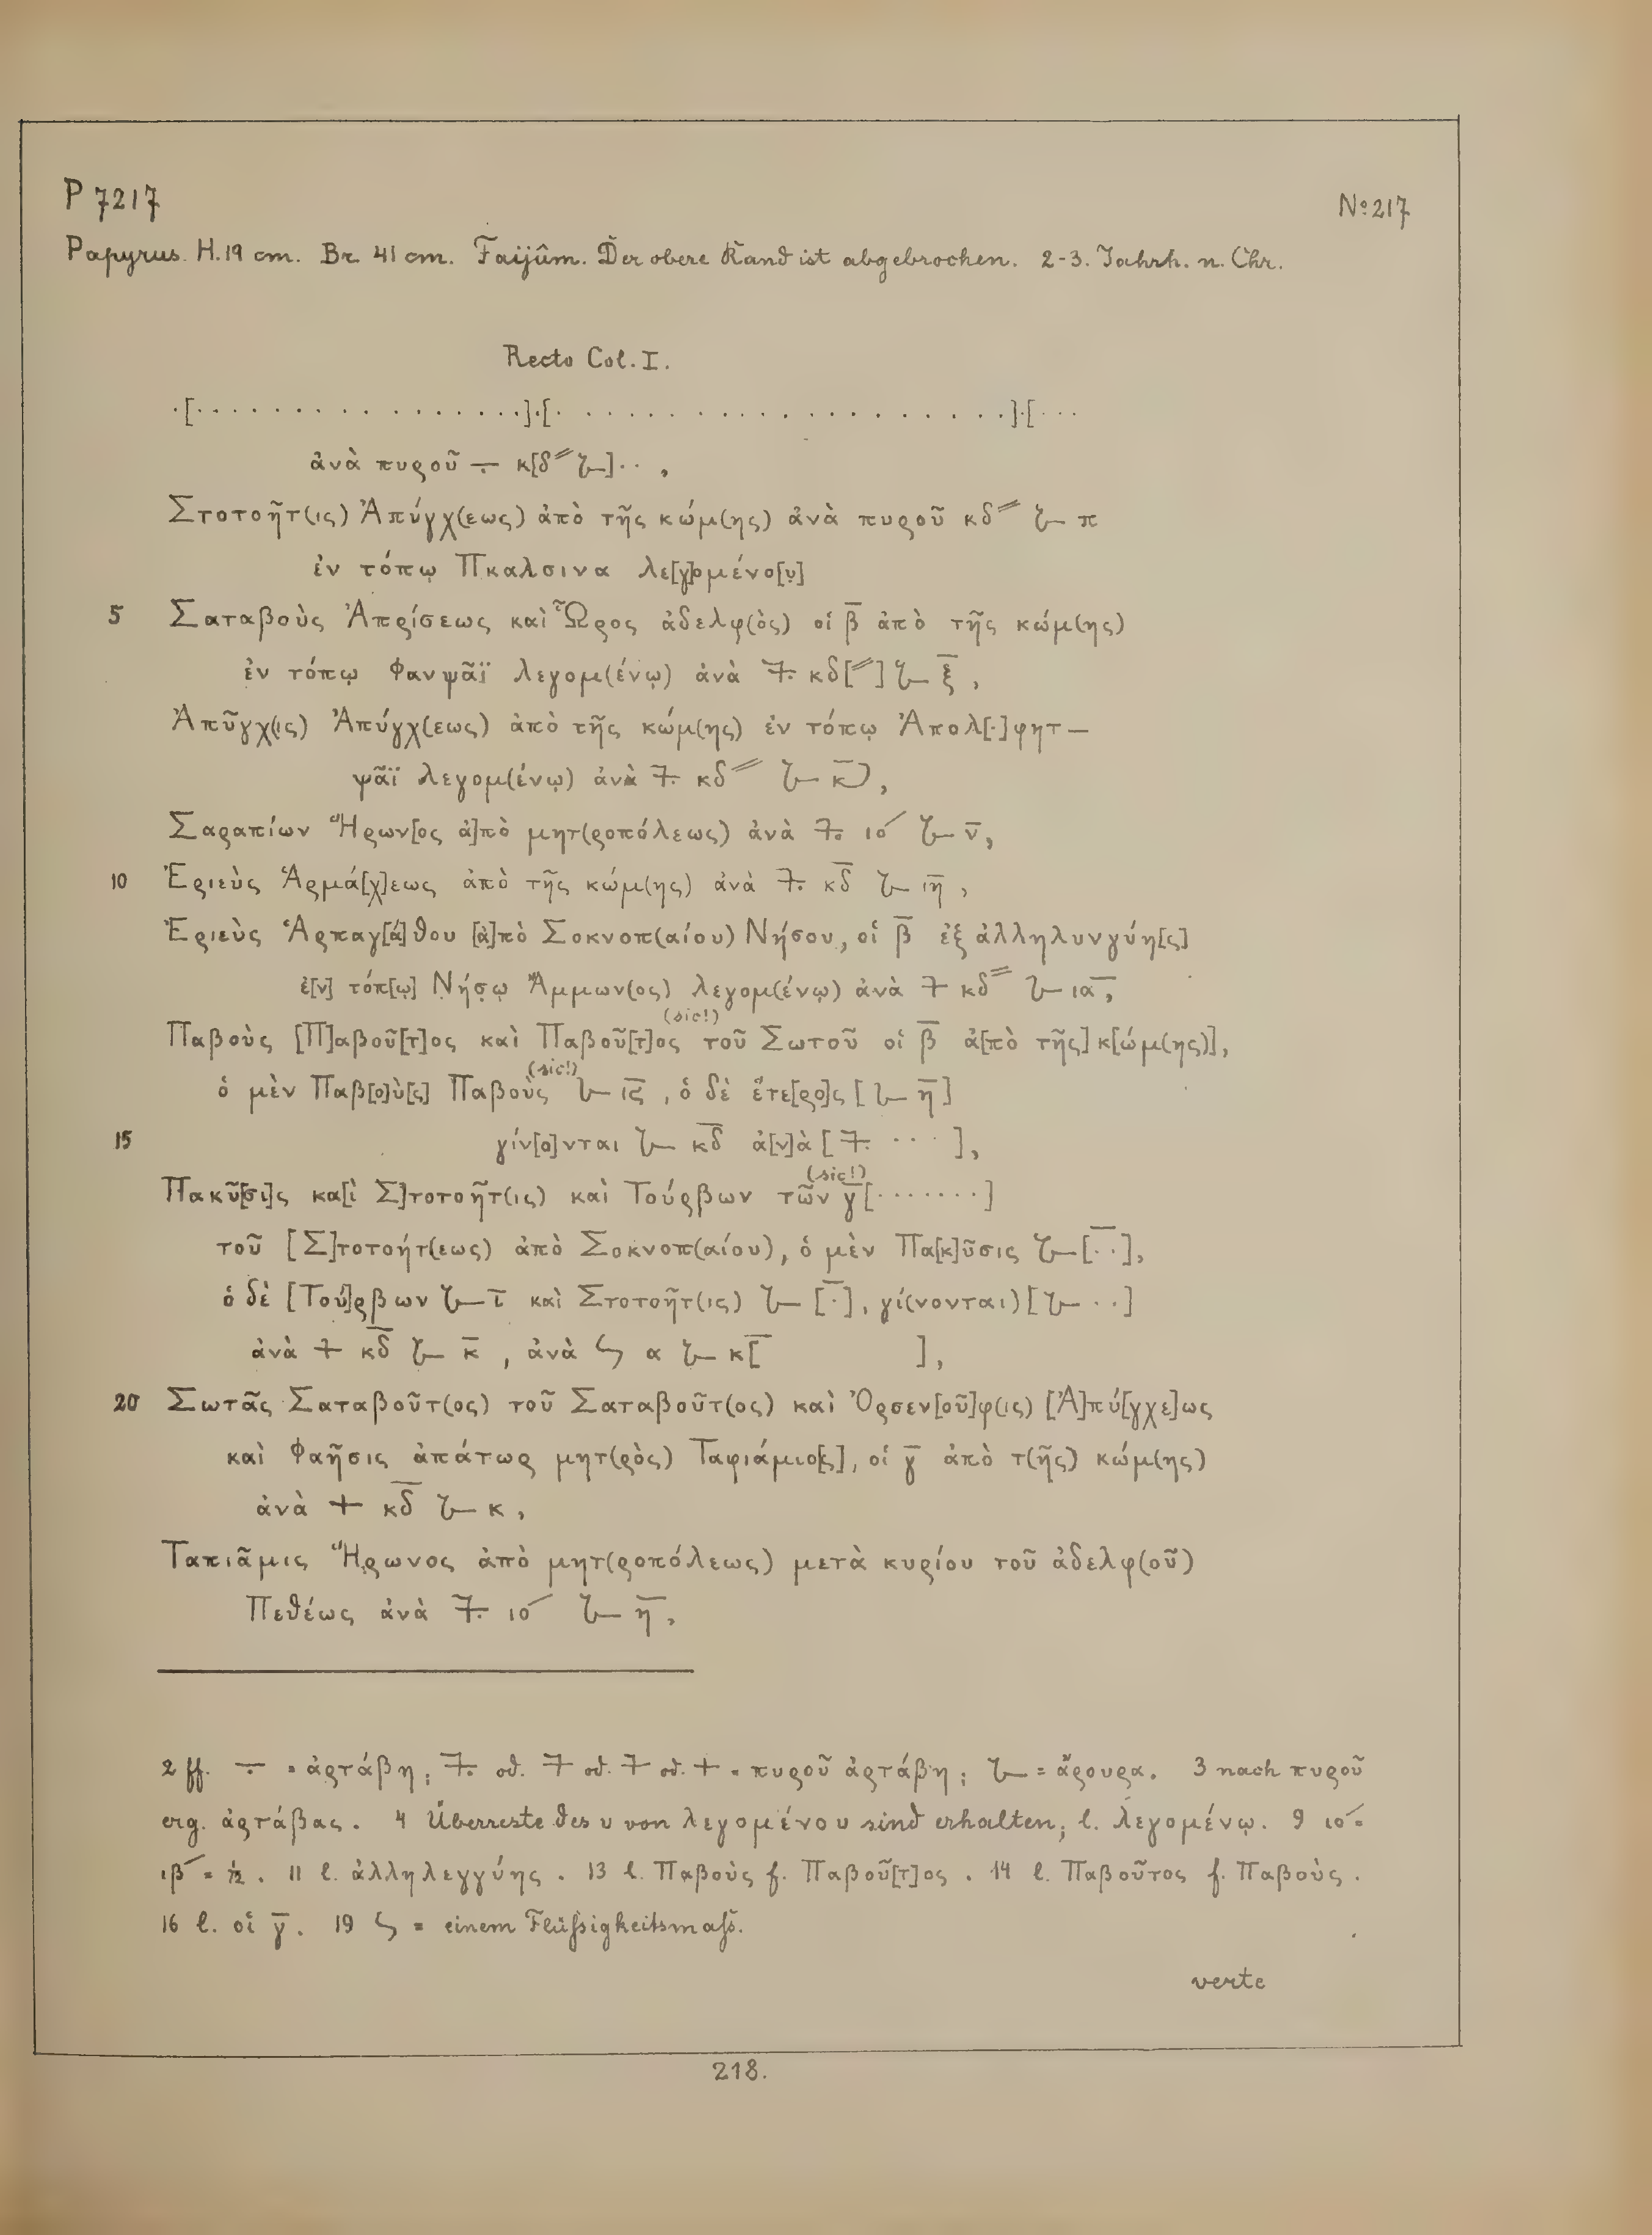 P 7217 Nº 217
Papyrus. H. 19 cm. Br. 41 cm. Faijûm. Der obere Rand ist abgebrochen. 2-3. Jahrh. n. Chr.
Recto Col. I.
·[· · · · · · · · · · · · · · · ·]·[· · · · · · · · · · · · · · · · · ·]·[· · ·
ἀνὰ πυροῦ ∸ κ[δ〃 𐅵]· · ,
Στοτοῆτ(ις) Ἀπύγχ(εως) ἀπὸ τῆς κώμ(ης) ἀνὰ πυροῦ κδ〃 𐅵 π
ἐν τόπῳ Πκαλσινα λε[γ]ομένο[υ]
5 Σαταβοὺς Ἀπρίσεως καὶ Ὧρος ἀδελφ(ὸς) οἱ β̅ ἀπὸ τῆς κώμ(ης)
ἐν τόπῳ Φανψᾶϊ λεγομ(ένῳ) ἀνὰ 7. κδ[〃] 𐅵 ξ̅ ,
Ἀπῦγχ(ις) Ἀπύγχ(εως) ἀπὸ τῆς κώμ(ης) ἐν τόπῳ Ἀπολ[·]φητ–
ψᾶϊ λεγομ(ένῳ) ἀνὰ 7. κδ〃 𐅵 κ̅ ,
Σαραπίων Ἥρων[ος ἀ]πὸ μητ(ροπόλεως) ἀνὰ 7. ιο´ 𐅵 ν̅,
10 Ἐριεὺς Ἁρμά[χ]εως ἀπὸ τῆς κώμ(ης) ἀνὰ 7. κδ̅ 𐅵 ιη̅ ,
Ἐριεὺς Ἁρπαγ[ά]θου [ἀ]πὸ Σοκνοπ(αίου) Νήσου, οἱ β̅ ἐξ ἀλληλυνγύη[ς]
ἐ[ν] τόπ[ῳ] Νήσῳ Ἄμμων(ος) λεγομ(ένῳ) ἀνὰ 7 κδ〃 𐅵 ια̅,
Παβοὺς [Π]αβοῦ[τ]ος καὶ Παβοῦ[τ]ος (sic!) τοῦ Σωτοῦ οἱ β̅ ἀ[πὸ τῆς] κ[ώμ(ης)],
ὁ μὲν Παβ[ο]ὺ[ς] Παβοὺς (sic!) 𐅵 ις̅ , ὁ δὲ ἕτε[ρο]ς [𐅵 η̅]
15 γίν[ο]νται 𐅵 κδ̅ ἀ[ν]ὰ [7. · · · ],
Πακῦ[σι]ς κα[ὶ Σ]τοτοῆτ(ις) καὶ Τούρβων τῶν (sic!) γ̅ [· · · · · · ·]
τοῦ [Σ]τοτοήτ(εως) ἀπὸ Σοκνοπ(αίου), ὁ μὲν Πα[κ]ῦσις 𐅵 [· ·],
ὁ δὲ [Τού]ρβων 𐅵 ι̅ καὶ Στοτοῆτ(ις) 𐅵 [·], γί(νονται) [𐅵 · ·]
ἀνὰ + κδ̅ 𐅵 κ̅ , ἀνὰ ϟ α 𐅵 κ[ ],
20 Σωτᾶς Σαταβοῦτ(ος) τοῦ Σαταβοῦτ(ος) καὶ Ὀρσεν[οῦ]φ(ις) [Ἀ]πύ[γχε]ως
καὶ Φαῆσις ἀπάτωρ μητ(ρὸς) Ταφιάμιο[ς], οἱ γ̅ ἀπὸ τ(ῆς) κώμ(ης)
ἀνὰ + κδ̅ 𐅵 κ ,
Ταπιᾶμις Ἥρωνος ἀπὸ μητ(ροπόλεως) μετὰ κυρίου τοῦ ἀδελφ(οῦ)
Πεθέως ἀνὰ 7. ιο´ 𐅵 η̅ .
2 ff. ∸ = ἀρτάβη; 7. od. 7 od. 7 od. + = πυροῦ ἀρτάβη; 𐅵 = ἄρουρα. 3 nach πυροῦ
erg. ἀρτάβας. 4 Überreste des υ von λεγομένου sind erhalten; l. λεγομένῳ. 9 ιο´ =
ιβ´ = 1/12. 11 l. ἀλληλεγγύης. 13 l. Παβοὺς f. Παβοῦ[τ]ος. 14 l. Παβοῦτος f. Παβοὺς.
16 l. οἱ γ̅. 19 ϟ = einem Flüssigkeitsmaß.
verte
218.